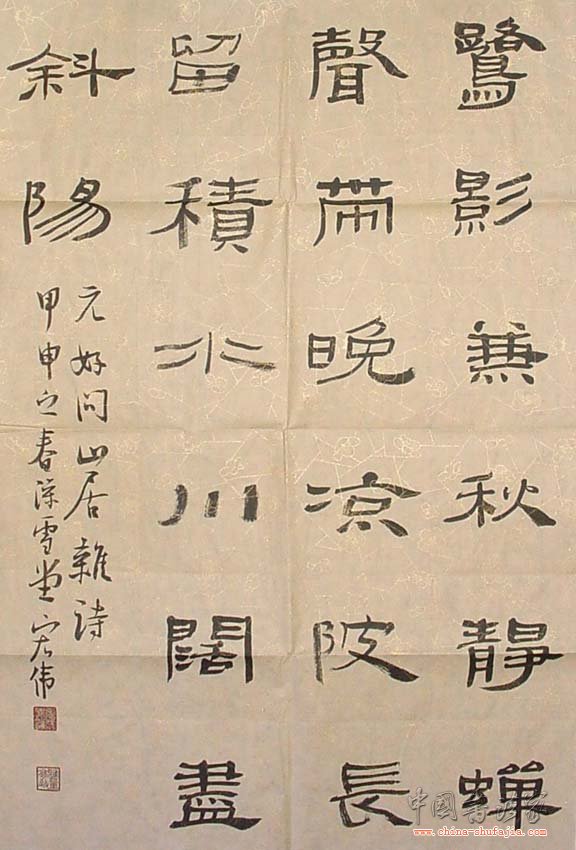 鷺影兼秋靜蟬
聲帶晚涼陂長
留積水川闊盡
斜陽
元好问山居雜诗
甲申之春深雪堂宏伟
中國書法家
www.china-shufajia.com